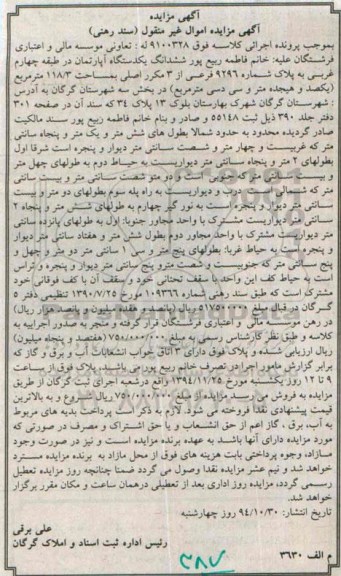 آگهی مزایده
آگهی مزایده اموال غیر منقول (سند رهنی)
بموجب پرونده اجرائی کلاسه فوق ۹۱۰۰۳۲۸ له : تعاونی موسسه مالی و اعتباری
فرشتگان علیه: خانم فاطمه ربیع پور ششدانگ یکدستگاه آپارتمان در طبقه چهارم
غربی به پلاک شماره ۹۲۹۶ فرعی از ۳ مکرر اصلی بمساحت ۱۱۸/۳ مترمربع
(یکصد و هیجده متر و سی دسی مترمربع) در بخش سه شهرستان گرگان به آدرس
: شهرستان گرگان شهرک بهارستان بلوک ۱۳ پلاک ۳۴ که سند آن در صفحه ۳۰۱
دفتر جلد ۳۹۰ ذیل ثبت ۵۵۱۴۸ و صادر و بنام خانم فاطمه ربیع پور سند مالکیت
صادر گردیده محدود به حدود شمالا بطول های شش متر و یک متر و پنجاه سانتی
متر که غربیست و چهار متر و شصت سانتی متر دیوار و پنجره است شرقا اول
بطولهای ۲ متر و پنجاه سانتی متر دیواریست به حیاط دوم به طولهای چهل متر
و بیست سانتی متر که جنوبی است و دو متر شصت سانتی متر و بیست سانتی
متر که شمالی است درب و دیواریست به راه پله سوم بطولهای دو متر و بیست
سانتی متر دیوار و پنجره است به نور گیر چهارم به طولهای شش متر و پنجاه ۲
سانتی متر دیواریست مشترک با واحد مجاور جنوبا: اول به طولهای پانزده سانتی
متر دیواریست مشترک با واحد مجاور دوم بطول شش متر و هفتاد سانتی متر دیوار
و پنجره است به حیاط غربا: بطولهای پنج متر و سی ۱ سانتی متر دو متر و چهل و
پنج سانتی متر که جنوبیست و شصت متر و پنج سانتی متر دیوار و پنجره و تراس
است به حیاط کف این واحد با سقف تحتانی خود و سقف آن با کف فوقانی خود
مشترک است که طبق سند رهنی شماره ۱۰۹۳۶۶ مورخ ۱۳۹۰/۷/۲۵ تنظیمی دفتر ۵
گرگان در قبال مبلغ ریال
در رهن موسسه مالی و اعتباری فرشتگان قرار گرفته و منجر به صدور اجراییه به
کلاسه و طبق نظر کارشناس رسمی به مبلغ ۷۵۰/۰۰۰/۰۰۰ (هفتصد و پنجاه میلیون)
ریال ارزیابی شده و پلاک فوق دارای ۳ اتاق خواب انشعابات آب و برق و گاز که
برابر گزارش مامور اجرا در تصرف خانم ربیع پور می باشد، پلاک فوق از ساعت
۹ تا ۱۲ روز یکشنبه مورخ ۱۳۹۴/۱۱/۲۵ واقع درشعبه اجرای ثبت گرگان از طریق
مزایده به فروش می رسد مزایده از مبلغ ۷۵۰/۰۰۰/۰۰۰ ریال شروع و به بالاترین
قیمت پیشنهادی نقدا فروخته می شود. لازم به ذکر است پرداخت بدهی های مربوط
به آب، برق ، گاز اعم از حق انشعاب و یا حق اشتراک و مصرف در صورتی که
مورد مزایده دارای آنها باشد به عهده برنده مزایده است و نیز در صورت وجود
مازاد، وجوه پرداختی بابت هزینه های فوق از محل مازاد به برنده مزایده مسترد
خواهد شد و نیم عشر مزایده نقدا وصول می گردد ضمنا چنانچه روز مزایده تعطیل
رسمی گردد، مزایده روز اداری بعد از تعطیلی درهمان ساعت و مکان مقرر برگزار
خواهد شد.
تاریخ انتشار: ۹۴/۱۰/۳۰ روز چهارشنبه
علی برقی
رئیس اداره ثبت اسناد و املاک گرگان
م الف ۳۶۳۰
۳۸۷